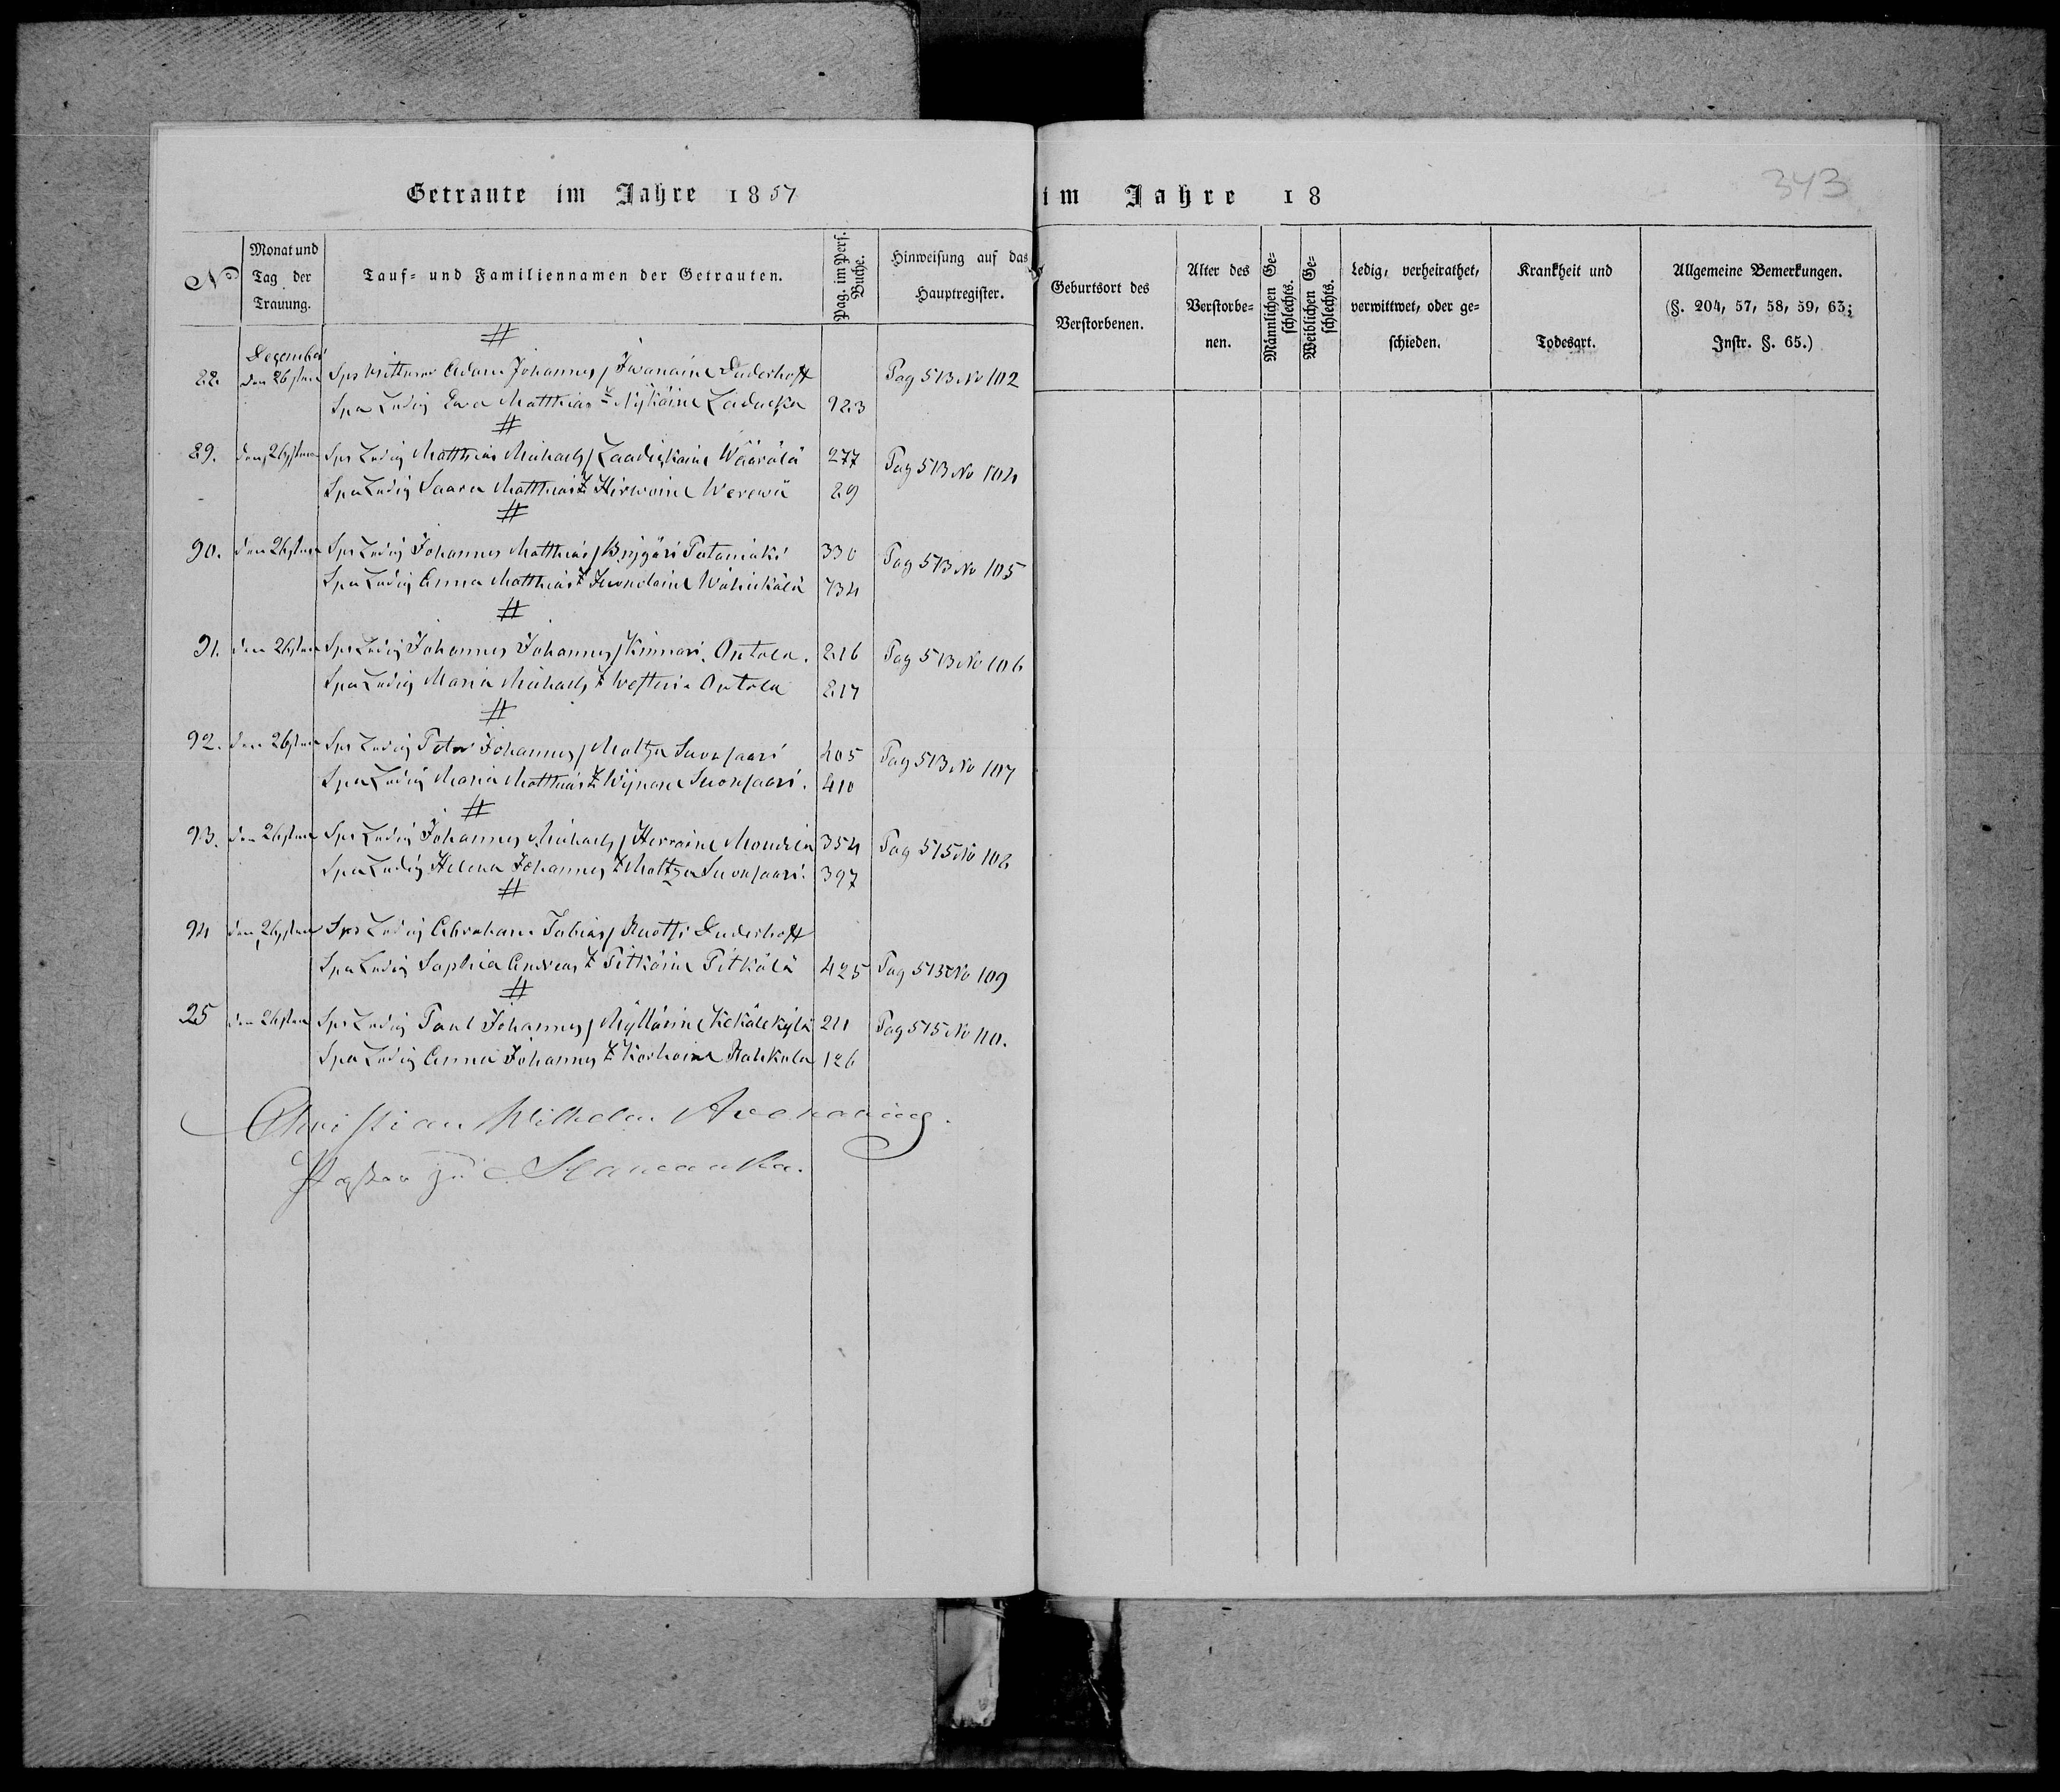 Getraute im Jahre 1857
No
Monat und Tag der Trauung.
Tauf- und Familiennamen der Getrauten.
Pag. im Pers. Buche.
Hinweisung auf das Hauptregister.
#
December
88. den 26sten Sps Wittwer Adam Johannes / Iwanaine Duderhoff Pag 513 No 102
Spa Ledig Ewa Matthias Z Nykäine Zaduska 923
#
89. den 26sten Sps Ledig Matthias Michaels / Waärälä 277 Pag 513 No 104
Spa Ledig Saara Matthias Z Hirwoine Werewä 29
#
90. den 26sten Sps Ledig Johannes Matthias / Patamäki 330 Pag 513 No 105
Spa Ledig Anna Matthias Z 734
#
91. den 26sten Sps Ledig Johannes Johannes / Kinnari. Ontola. 216 Pag 513 No 106
Spa Ledig Maria Michaels Z Ontola 217
#
92. den 26sten Sps Ledig Peter Johannes / Suonsaari 405 Pag 513 No 107
Spa Ledig Maria Matthias Z Suonsaari. 410
#
93. den 26sten Sps Ledig Johannes Michaels / Herraine 354 Pag 515 No 108
Spa Ledig Helena Johannes Z Suonsaari. 397
#
94 den 26sten Sps Ledig Abraham Tobias / Ruotsi Duderhoff
Spa Ledig Sophia Andreas Z Pitkäine Pitkälä 425 Pag 513 No 109
#
25 den 26sten Sps Ledig Paul Johannes / Myttärine Kekälekylä 211 Pag 515 No 110.
Spa Ledig Anna Johannes Z Korhoine 126
Christian Wilhelm Avenarius.
Pastor zu
im Jahre 18
343
Geburtsort des Verstorbenen.
Alter des Verstorbe-nen.
Männlichen Ge-schlechts.
Weiblichen Ge-schlechts.
Ledig, verheirathet, verwittwet, oder ge-schieden.
Krankheit und Todesart.
Allgemeine Bemerkungen.
(§. 204, 57, 58, 59, 63;
Instr. §. 65.)